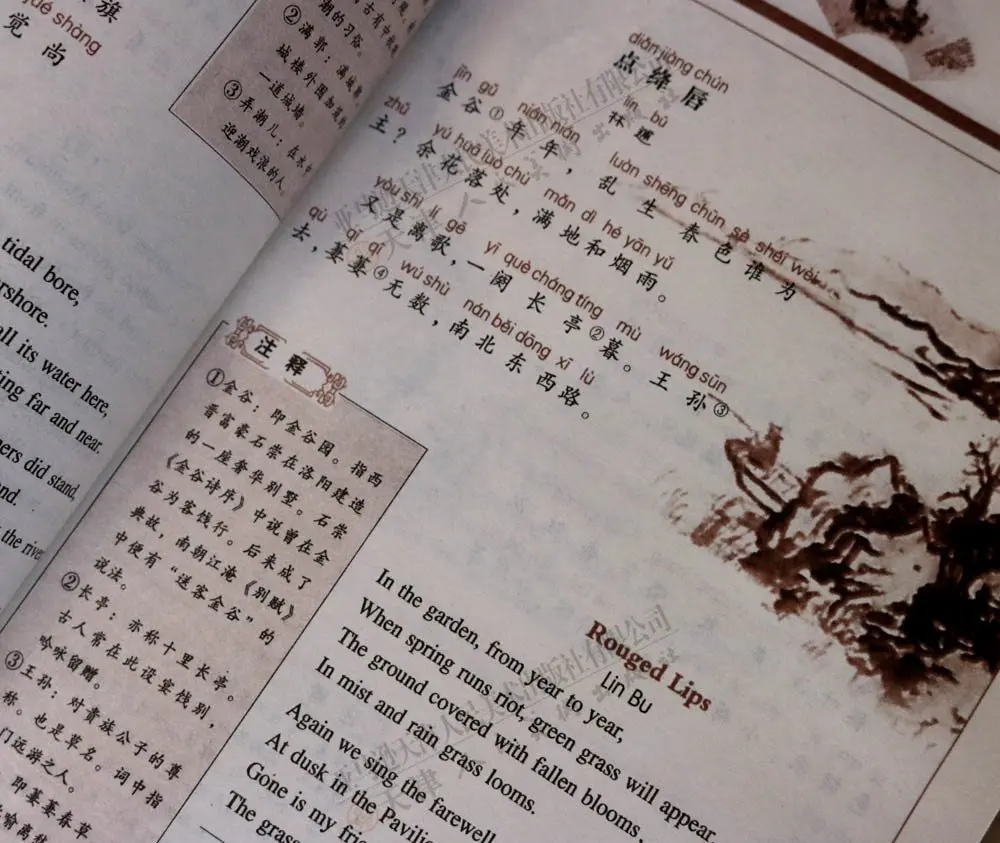 旗
jué shàng
觉 尚
潮的习俗。
②满郭：满城
城楼外围加
一道城墙。
③弄潮儿：在水中
迎潮戏浪的人
tidal bore,
ershore.
all its water here,
ting far and near.
ners did stand,
the river
diǎn jiàng chún
点 绛 唇
lín bū
林 逋
jīn gǔ nián nián luàn shēng chūn sè shéi wéi
金谷①年年，乱生春色谁为
zhǔ yú huā luò chù mǎn dì hé yān yǔ
主？余花落处，满地和烟雨。
yòu shì lí gē yī què cháng tíng mù wáng sūn
又是离歌，一阕长亭②暮。王孙③
qù qī qī wú shù nán běi dōng xī lù
去，萋萋④无数，南北东西路。
注释
①金谷：即金谷园。指西
晋富豪石崇在洛阳建造
的一座奢华别墅。石崇
《金谷诗序》中说曾在金
谷为客饯行。后来成了
典故，南朝江淹《别赋》
中便有“送客金谷”的
说法。
②长亭：亦称十里长亭。
古人常在此设宴饯别，
吟咏留赠。
③王孙：对贵族公子的尊
称。也是草名。词中指
门远游之人。
即萋萋春草
喻离愁
Rouged Lips
Lin Bu
In the garden, from year to year,
When spring runs riot, green grass will appear.
The ground covered with fallen blooms,
In mist and rain grass looms.
Again we sing the farewell
At dusk in the Pavilion
Gone is my frie
The grass